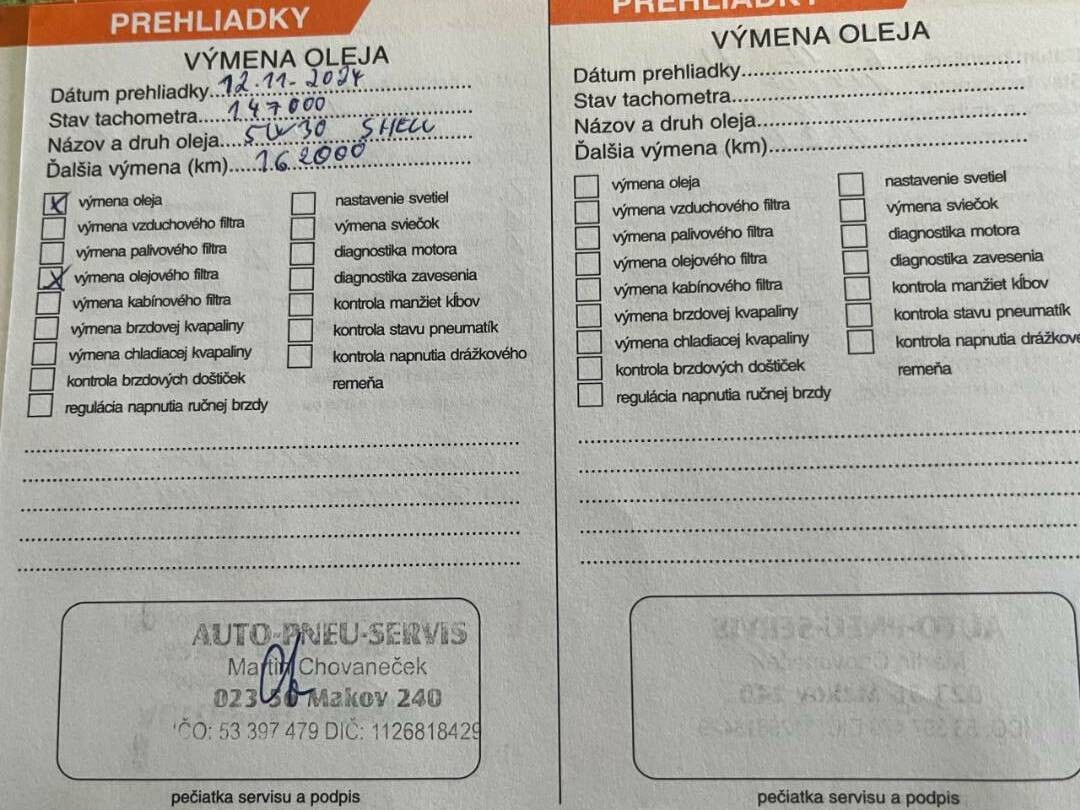 PREHLIADKY
VÝMENA OLEJA
Dátum prehliadky..12.11-2024
Stav tachometra....147000
Názov a druh oleja....5W30 SHELL
Ďalšia výmena (km).....162000
X výmena oleja
výmena vzduchového filtra
výmena palivového filtra
X výmena olejového filtra
výmena kabínového filtra
výmena brzdovej kvapaliny
výmena chladiacej kvapaliny
kontrola brzdových doštiček
regulácia napnutia ručnej brzdy
nastavenie svetiel
výmena sviečok
diagnostika motora
diagnostika zavesenia
kontrola manžiet kĺbov
kontrola stavu pneumatík
kontrola napnutia drážkového
remeňa
AUTO-PNEU-SERVIS
Martin Chovaneček
023 56 Makov 240
IČO: 53 397 479 DIČ: 1126818429
pečiatka servisu a podpis
PREHLIADKY
VÝMENA OLEJA
Dátum prehliadky
Stav tachometra
Názov a druh oleja
Ďalšia výmena (km)
výmena oleja
výmena vzduchového filtra
výmena palivového filtra
výmena olejového filtra
výmena kabínového filtra
výmena brzdovej kvapaliny
výmena chladiacej kvapaliny
kontrola brzdových doštiček
regulácia napnutia ručnej brzdy
nastavenie svetiel
výmena sviečok
diagnostika motora
diagnostika zavesenia
kontrola manžiet kĺbov
kontrola stavu pneumatík
kontrola napnutia drážkove
remeňa
pečiatka servisu a podpis